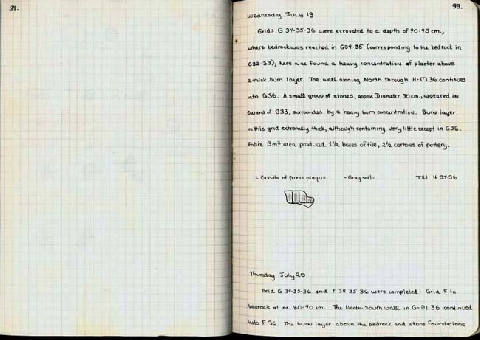 31.
99.
Wednesday July 19
Grids G 34-35-36 were excavated to a depth of 90-95 cm,
where bedrock was reached in G34-35 (corresponding to the bedrock in
), here was found a heavy concentration of plaster above
a thick burn layer. The wall running North through H-F/ 36 continues
into G36. A small group of stones, Diameter 30 cm, appeared in
G33, surrounded by a heavy burn concentration. Burn layer
in this grid extremely thick, although containing very little except in G36.
Entire 3m² area produced 1½ boxes of tile, 2½ cartons of pottery.
Thursday July 20
Grids G 34-35-36 and F 34-35-36 were completed. Grid F to
bedrock at 90 cm. The North-South wall, in 36 continued
into F 36. The burn layer above the bedrock and stone foundations